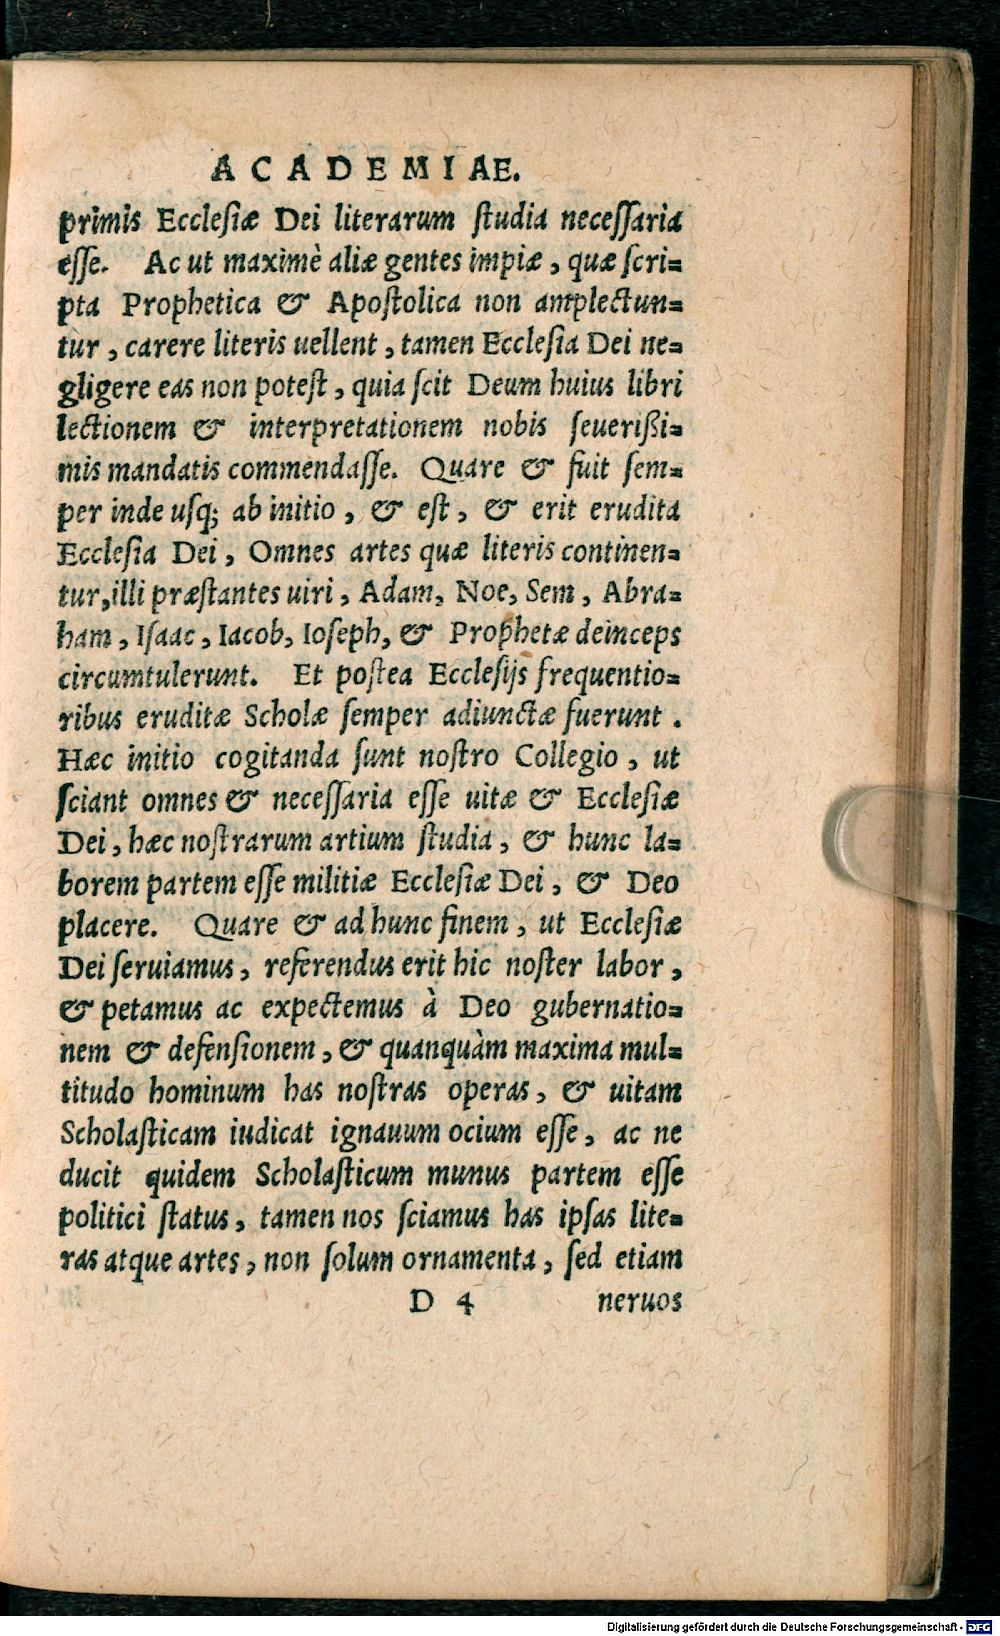 ACADEMIAE.
primis Ecclesiæ Dei literarum ſtudia neceſſaria
eſſe. Ac ut maximè aliæ gentes impiæ, quæ ſcri=
pta Prophetica & Apoſtolica non amplectun=
tur, carere literis uellent, tamen Eccleſia Dei ne=
gligere eas non poteſt, quia ſcit Deum huius libri
lectionem & interpretationem nobis ſeuerißi=
mis mandatis commendaſſe. Quare & fuit ſem=
per inde uſq; ab initio, & eſt, & erit erudita
Eccleſia Dei, Omnes artes quæ literis continen=
tur, illi præſtantes uiri, Adam, Noe, Sem, Abra=
ham, Iſaac, Iacob, Ioſeph, & Prophetæ deinceps
circumtulerunt. Et poſtea Eccleſijs frequentio=
ribus eruditæ Scholæ ſemper adiunctæ fuerunt.
Hæc initio cogitanda ſunt noſtro Collegio, ut
ſciant omnes & neceſſaria eſſe uitæ & Eccleſiæ
Dei, hæc noſtrarum artium ſtudia, & hunc la=
borem partem eſſe militiæ Eccleſiæ Dei, & Deo
placere. Quare & ad hunc finem, ut Eccleſiæ
Dei ſeruiamus, referendus erit hic noſter labor,
& petamus ac expectemus à Deo gubernatio=
nem & defenſionem, & quanquàm maxima mul=
titudo hominum has noſtras operas, & uitam
Scholaſticam iudicat ignauum ocium eſſe, ac ne
ducit quidem Scholaſticum munus partem eſſe
politici ſtatus, tamen nos ſciamus has ipſas lite=
ras atque artes, non ſolum ornamenta, ſed etiam
D 4 neruos
Digitalisierung gefördert durch die Deutsche Forschungsgemeinschaft - DFG